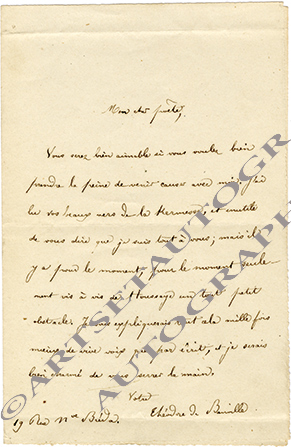 Mon cher poëte,
Vous serez bien aimable si vous voulez bien
prendre la peine de venir causer avec moi; j'ai
lu vos beaux vers de la Kermesse, et inutile
de vous dire que je suis tout à vous; mais il
y a pour le moment, pour le moment seule-
ment vis à vis de Houssaye un tout petit
obstacle. Je vous expliquerais tout cela mille fois
mieux de vive voix que par écrit, et je serais
bien charmé de vous serrer la main.
Votre
Théodore de Banville.
19 Rue Nve Bréda.
©ARTSETAUTOGRAPH
AUTOGRAPH